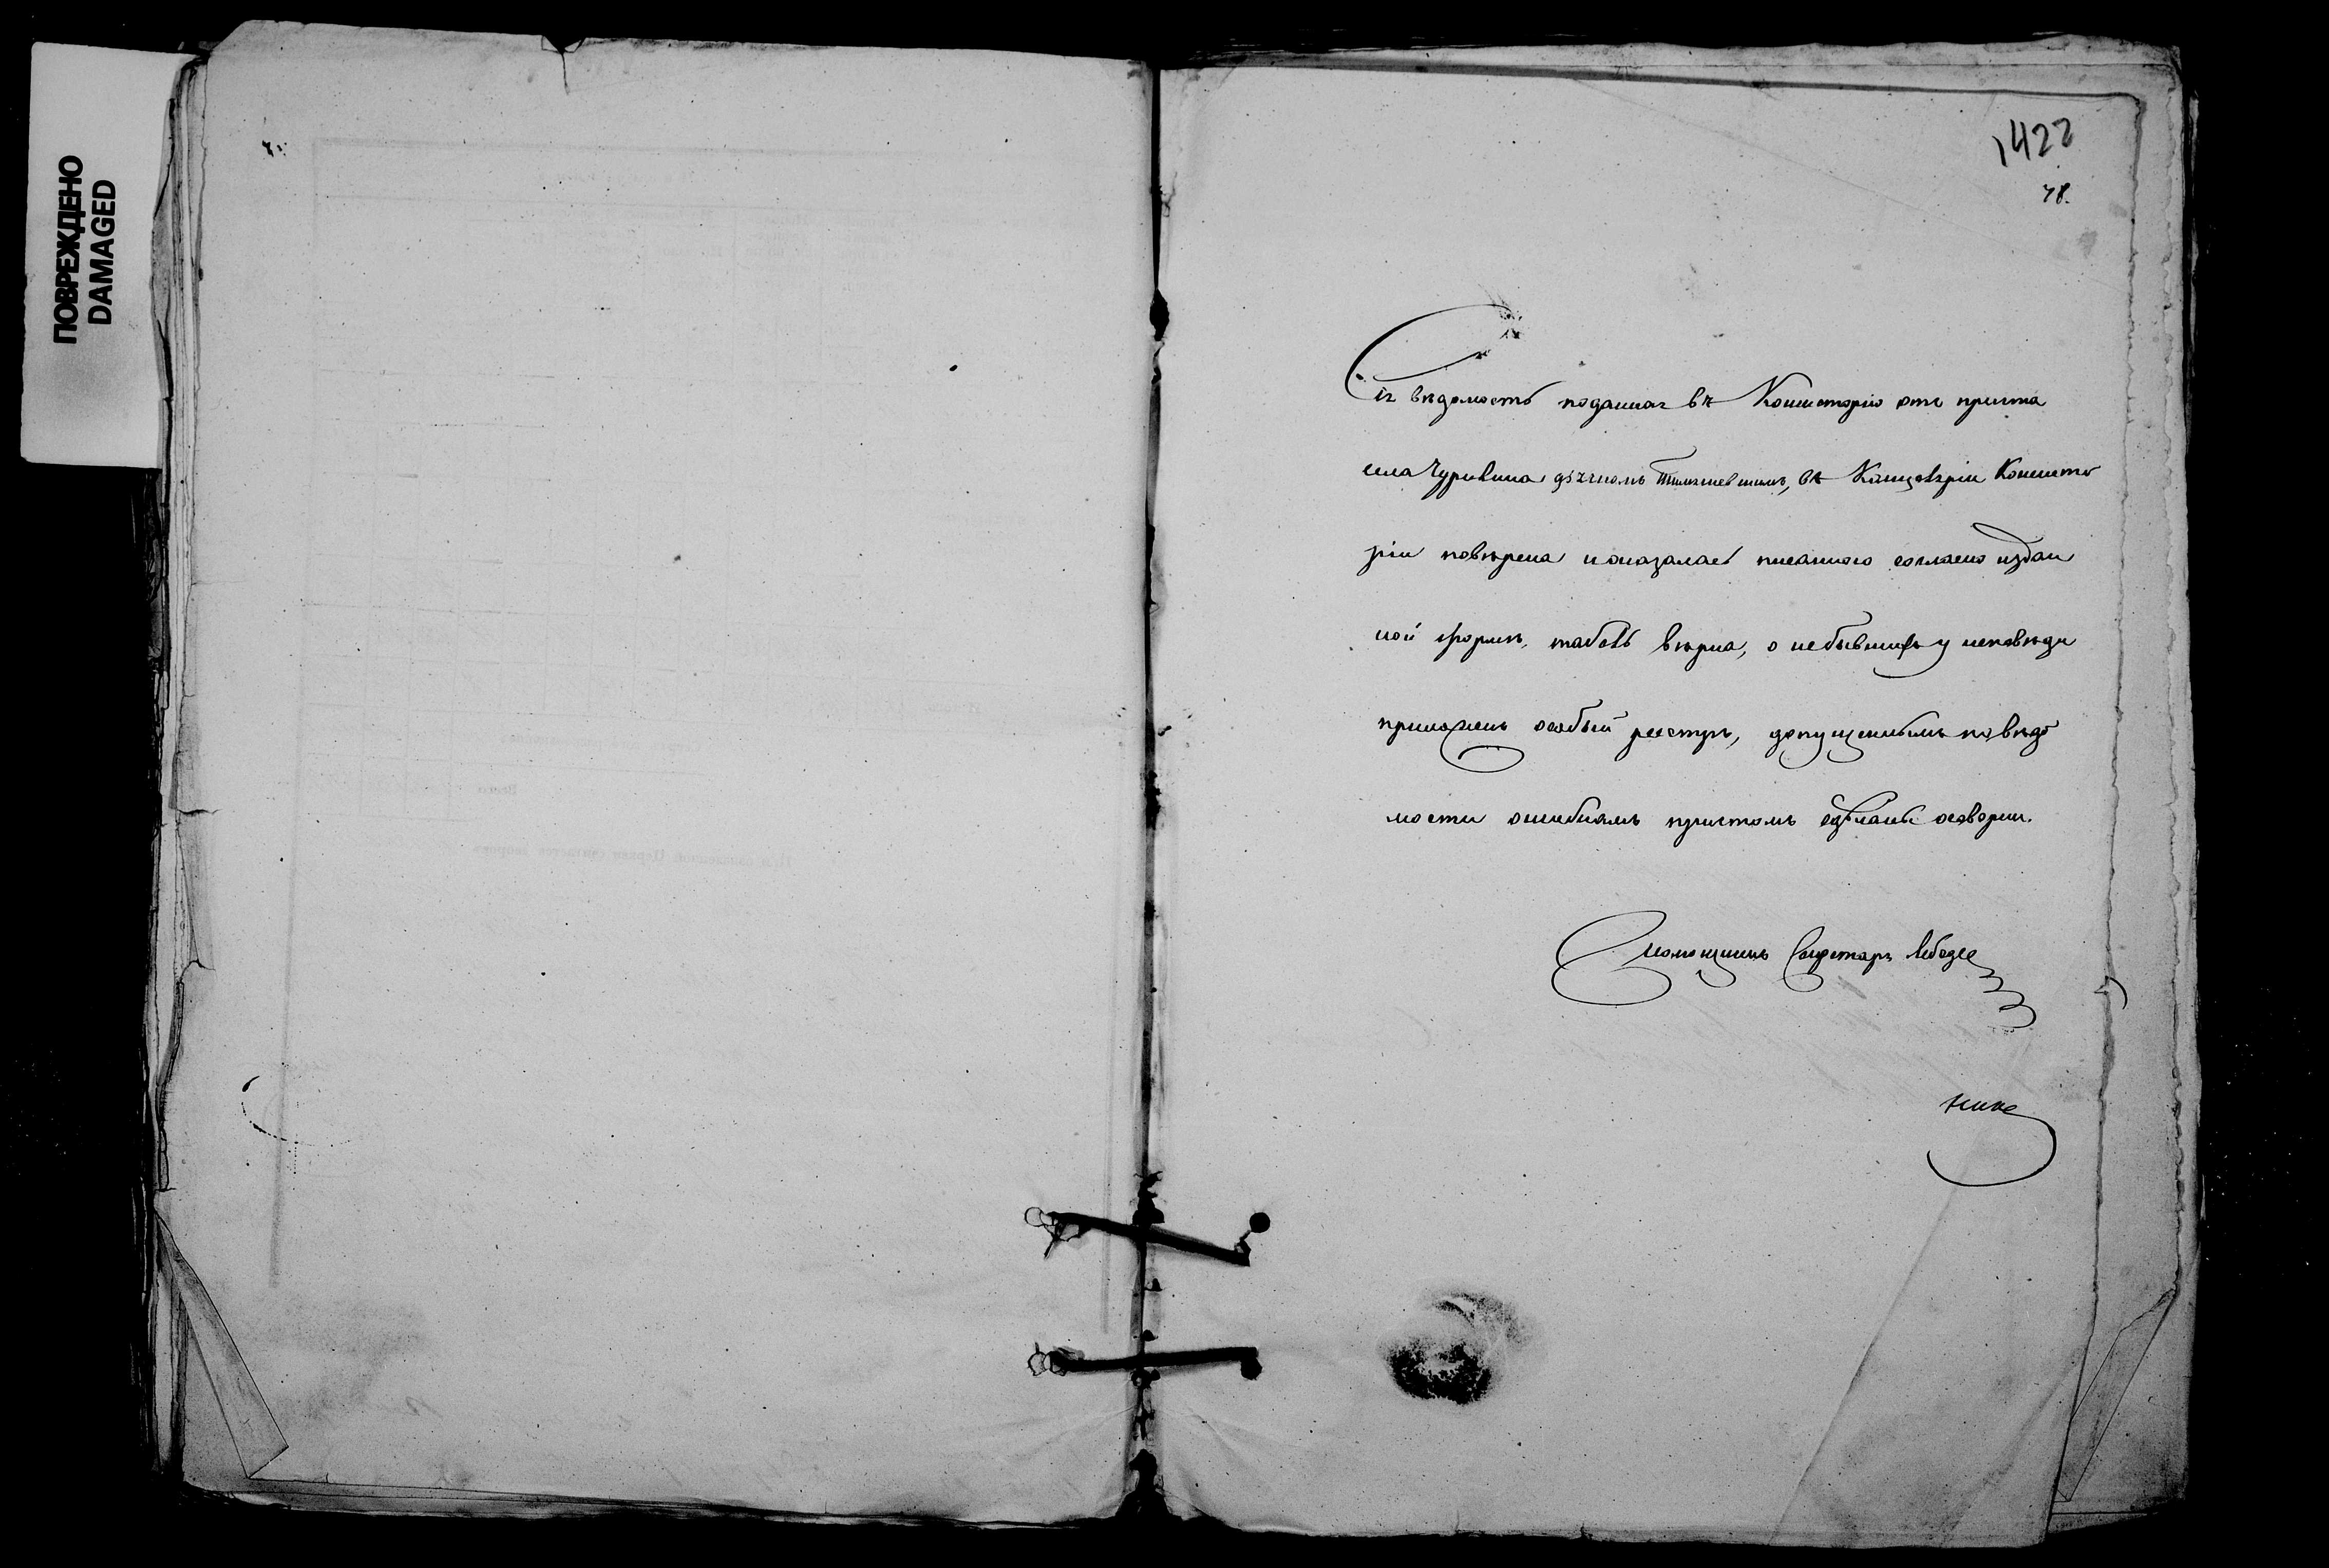 ПОВРЕЖДЕНО
DAMAGED
1422
78.
Сія вѣдомость поданная въ Консисторію отъ причта
села Чуривина дьячкомъ въ Канцеляріи Консисто
ріи повѣрена и оказалась писанною согласно издан
ной формѣ, табель вѣрна, о небывшихъ у исповѣди
приложенъ особый реестръ, допущеннымъ по вѣдо
мости ошибкамъ причтомъ сдѣланы оговорки.
Помощникъ Секретаря Лебеде
Всего